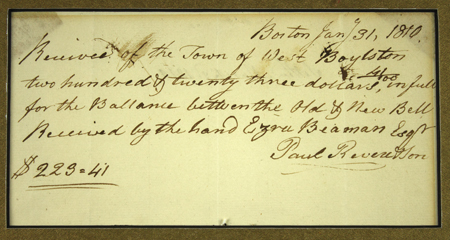 Boston Jany 31, 1810.
Received of the Town of West Boylston
two hundred & twenty three dollars, 41/100 in full
for the Ballance between the Old & New Bell
Received by the hand Ezra Beaman Esqr
Paul Revere & Son
$ 223=41